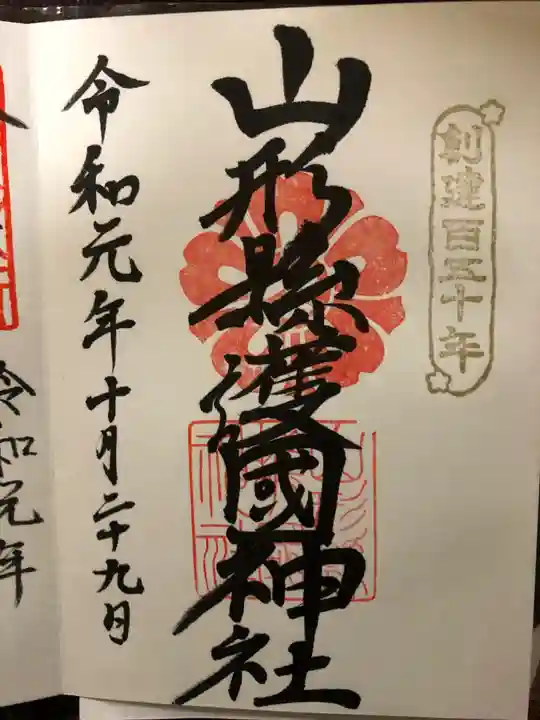 創建百五十年
山形縣護國神社
令和元年十月二十九日
令和元年